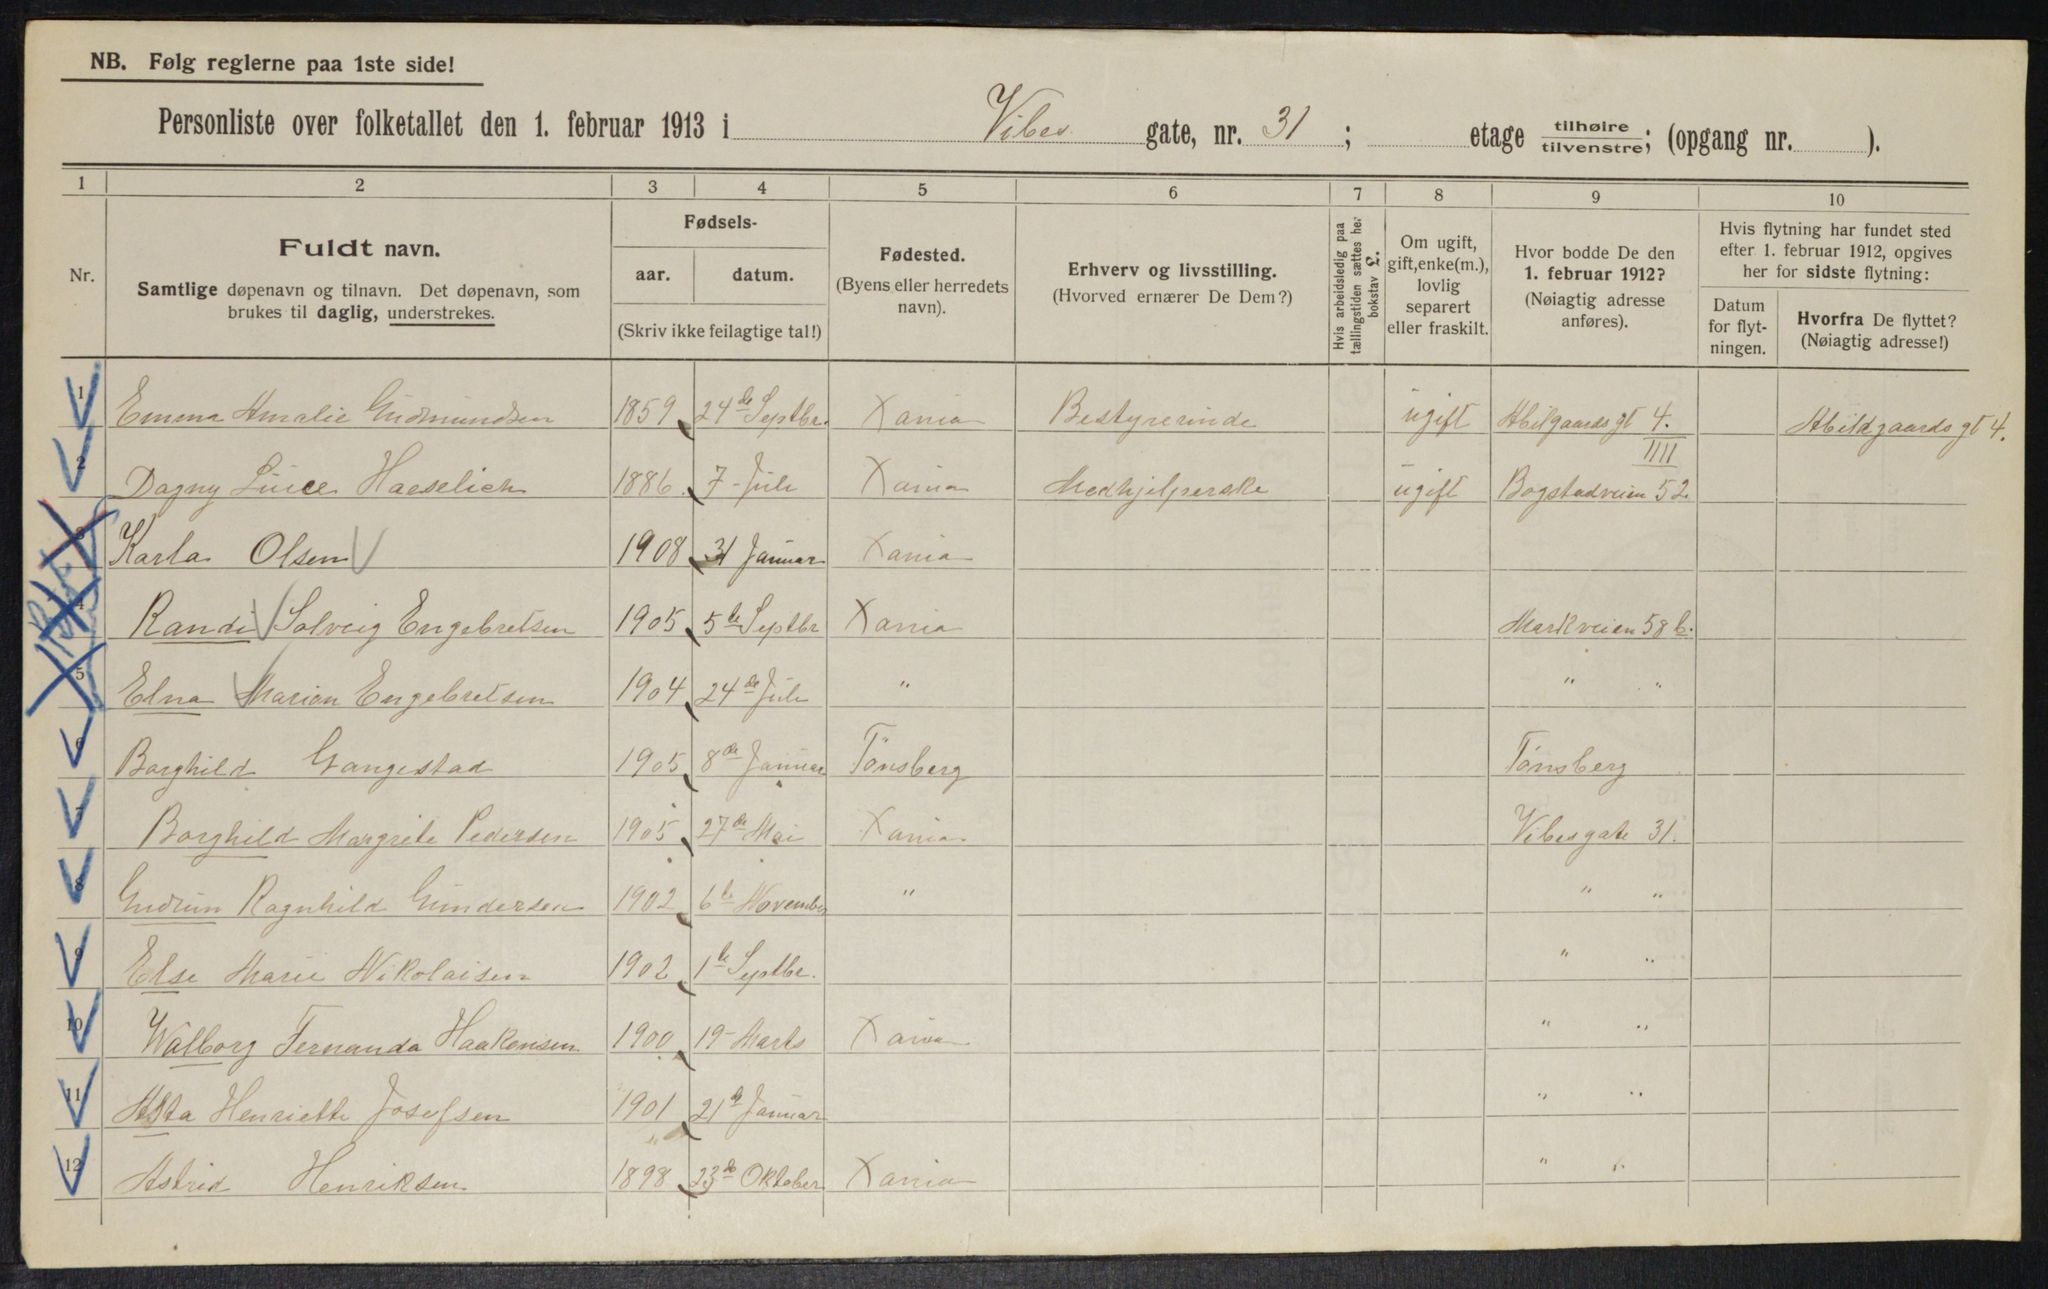 NB. Følg reglerne paa 1ste side!
Personliste over folketallet den 1. februar 1913 i Vibes gate, nr. 31; etage tilhøire tilvenstre; (opgang nr. ).
1 2 3 4 5 6 7 8 9 10
Nr.
Fuldt navn.
Samtlige døpenavn og tilnavn. Det døpenavn, som
brukes til daglig, understrekes.
Fødsels-
aar. datum.
(Skriv ikke feilagtige tal!)
Fødested.
(Byens eller herredets
navn).
Erhverv og livsstilling.
(Hvorved ernærer De Dem?)
Hvis arbeidsledig paa
tællingstiden sættes her
bokstav L.
Om ugift,
gift, enke(m.),
lovlig
separert
eller fraskilt.
Hvor bodde De den
1. februar 1912?
(Nøiagtig adresse
anføres).
Hvis flytning har fundet sted
efter 1. februar 1912, opgives
her for sidste flytning:
Datum
for flyt-
ningen.
Hvorfra De flyttet?
(Nøiagtig adresse!)
1 Emma Amalie Gudmundsen 1859 24de Septbr. Xania Bestyrerinde ugift Abilgaards gt 4. Abildgaards gt 4.
IIII
2 Dagny Luice Haeselich 1886 7 - Juli Xania Medhjelperske ugift Bogstadveien 52.
3 Karla Olsen 1908 31 Januar Xania
4 Randi Solveig Engebretsen 1905 5te Septbr Xania Markveien 58 b.
5 Elna Marion Engebretsen 1904 24de Juli " " "
6 Borghild Gangestad 1905 8de Januar Tønsberg Tønsberg
7 Borghild Margrete Pedersen 1905 27de Mai Xania Vibesgate 31.
8 Gudrun Ragnhild Gundersen 1902 6te November " " "
9 Else Marie Nikolaisen 1902 1te Septbr. " "
10 Walborg Fernanda Haakensen 1900 19 - Marts Xania " "
11 Asta Henriette Josefsen 1901 21de Januar " "
12 Astrid Henriksen 1898 23de Oktober Xania " "